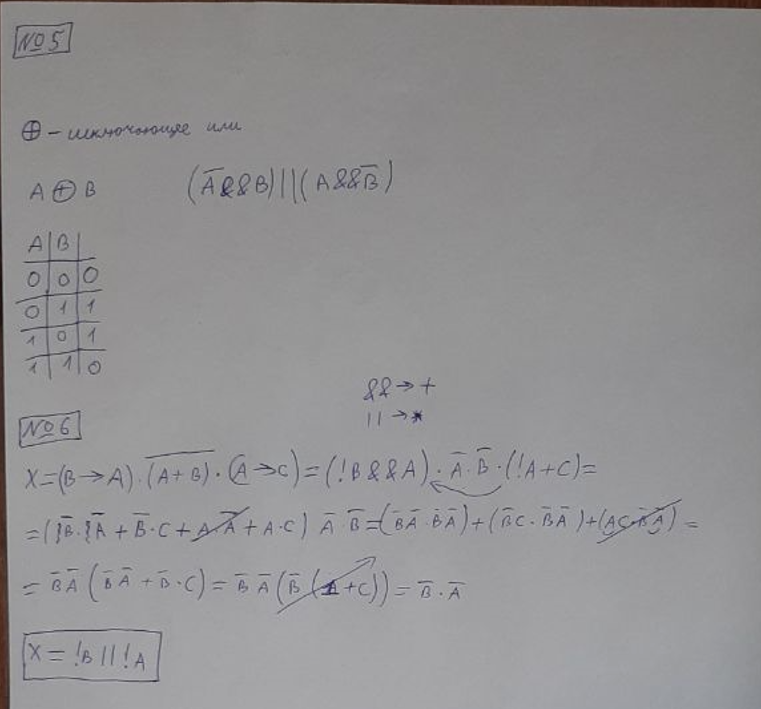 №5
⊕ – исключающее или
A ⊕ B (A̅&&B)||(A&&B̅)
A B
0 0 0
0 1 1
1 0 1
1 1 0
&& → +
|| → *
№6
X=(B→A)·(A+B)̅·(A→C)=(!B&&A)·A̅·B̅·(!A+C)=
=(B̅·A̅+B̅·C+A·A̅+A·C) A̅·B̅=(B̅A̅·B̅A̅)+(B̅C·B̅A̅)+(AC·B̅A̅)=
= B̅A̅(B̅A̅+B̅·C)= B̅A̅(B̅(1+C))= B̅·A̅
X = !B||!A